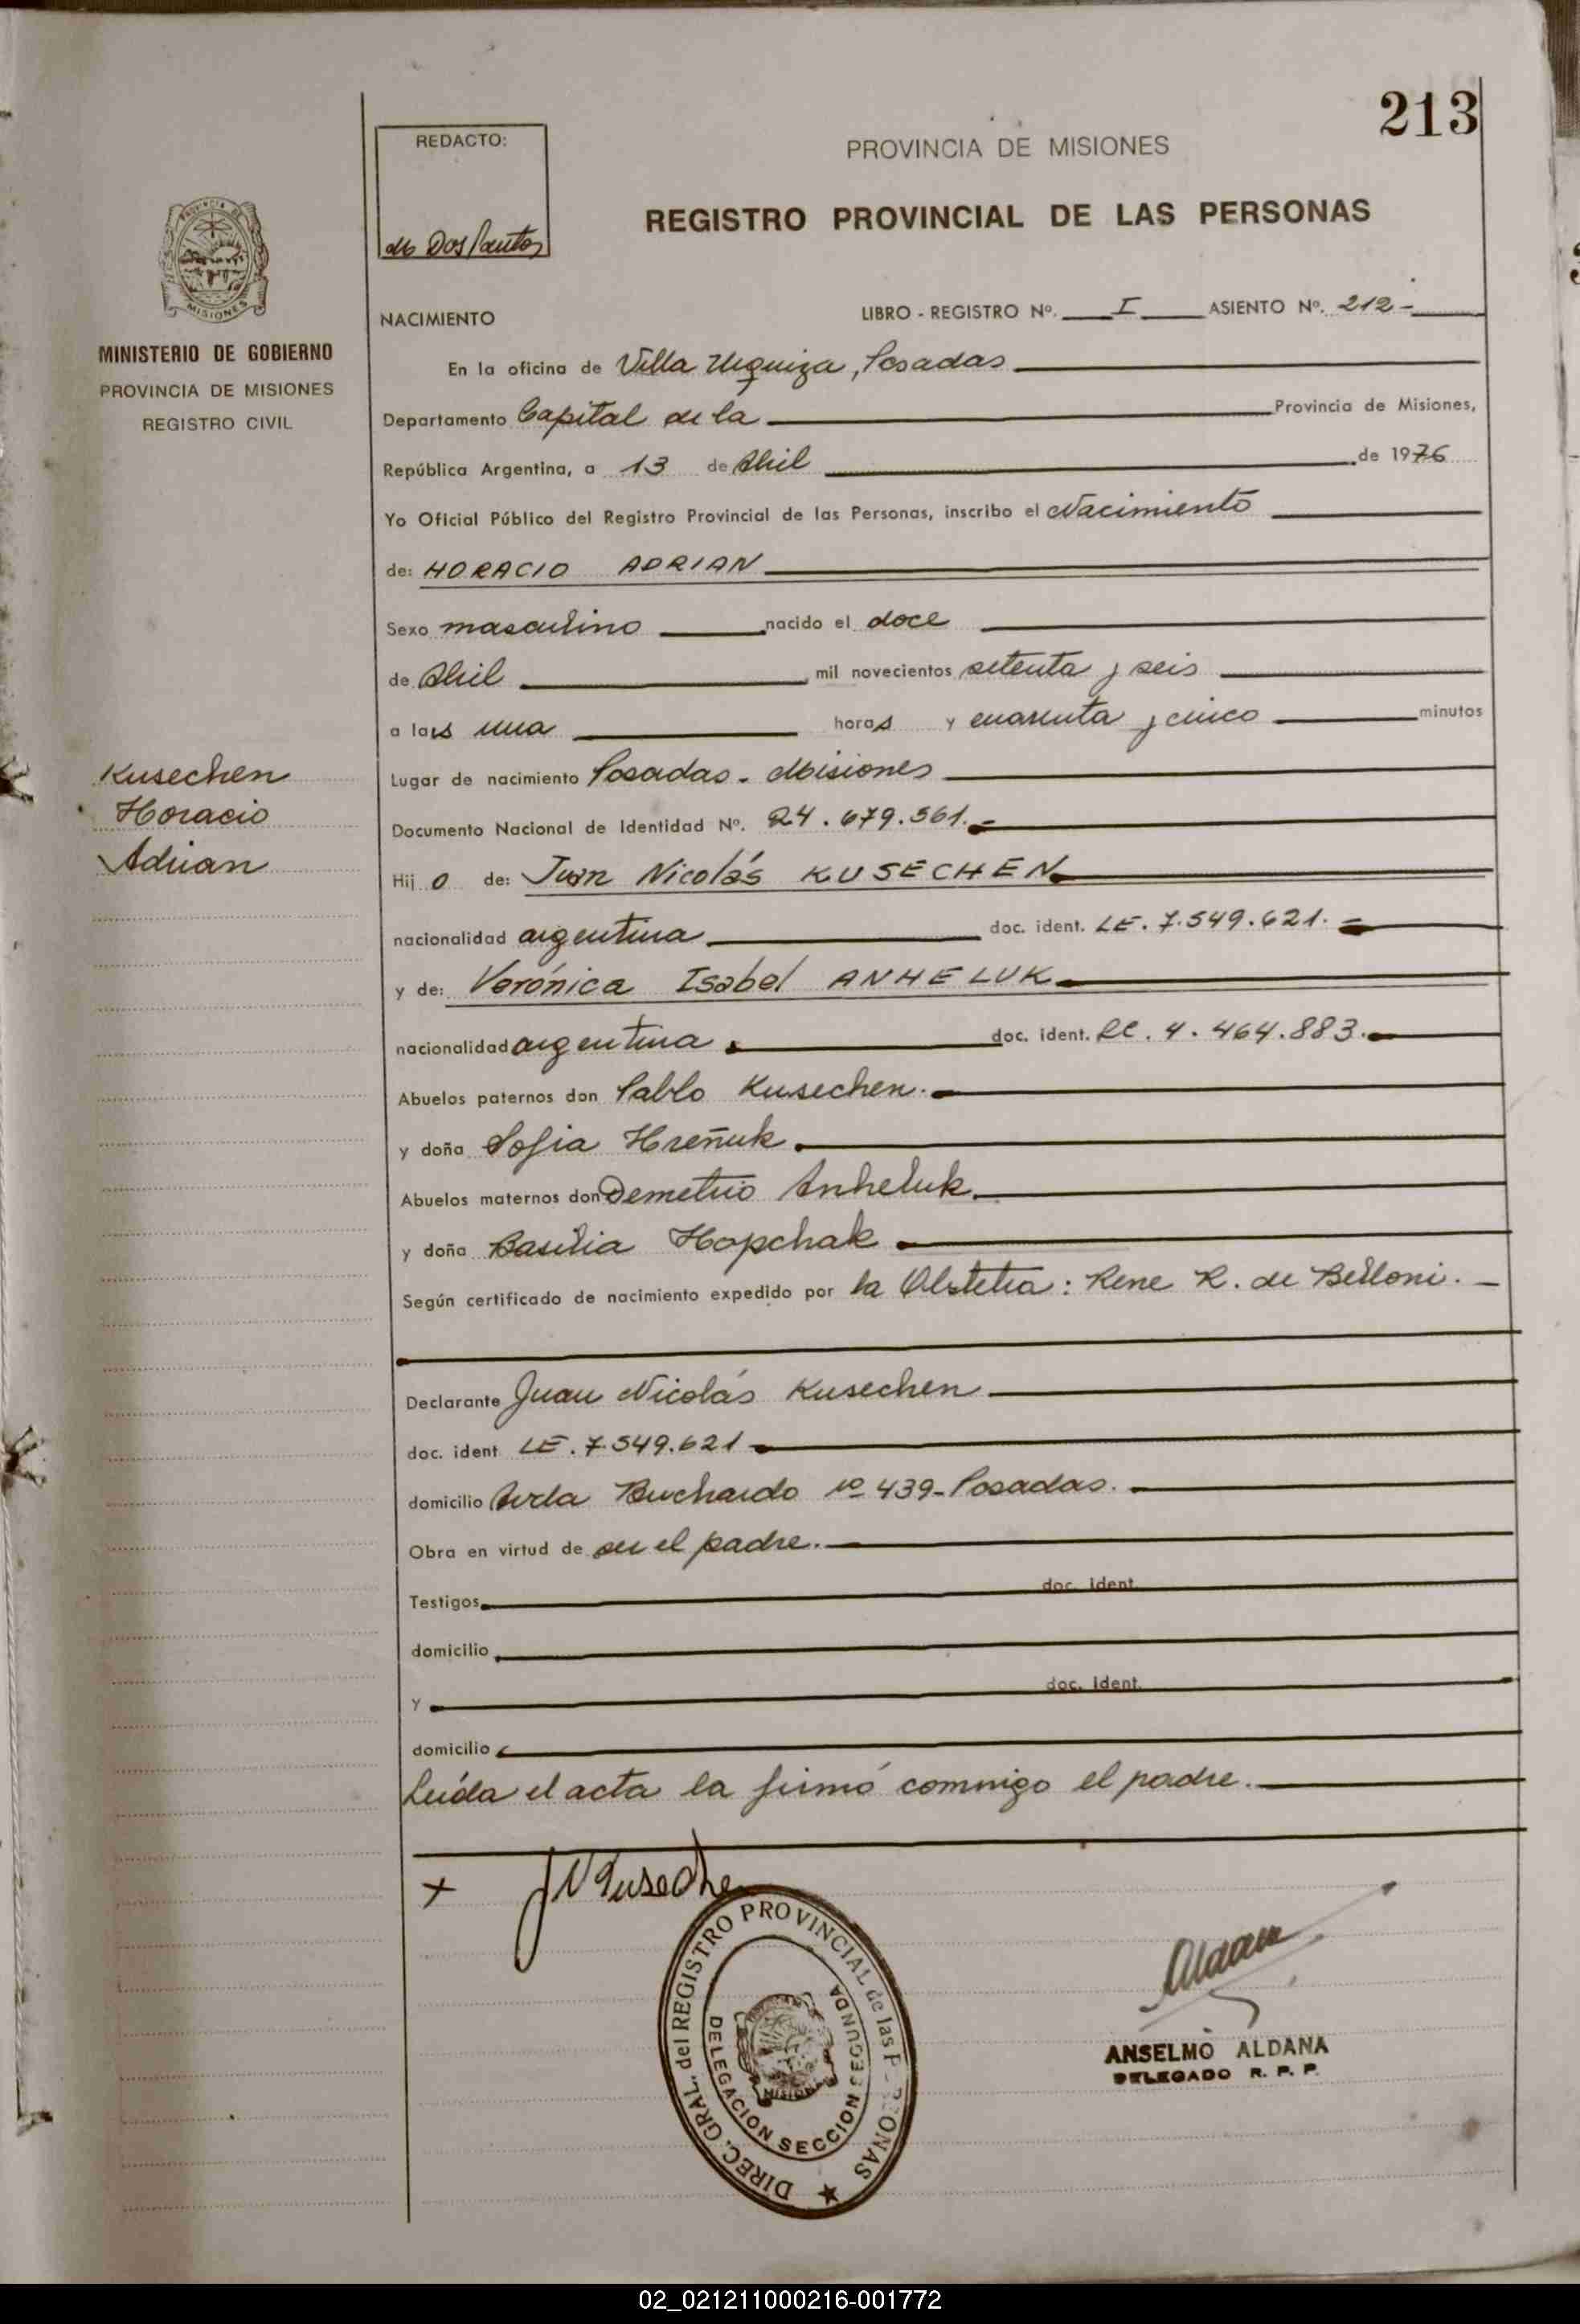 213
REDACTO:
PROVINCIA DE MISIONES
REGISTRO PROVINCIAL DE LAS PERSONAS
Dos Santos
MISIONES
MINISTERIO DE GOBIERNO
PROVINCIA DE MISIONES
REGISTRO CIVIL
NACIMIENTO LIBRO - REGISTRO Nº. I ASIENTO Nº. 212-
En la oficina de Villa Urquiza, Posadas
Departamento Capital de la Provincia de Misiones,
República Argentina, a 13 de Abril de 1976
Yo Oficial Público del Registro Provincial de las Personas, inscribo el Nacimiento
de: HORACIO ADRIAN
Sexo masculino nacido el doce
de Abril mil novecientos setenta y seis
a las una horas y cuarenta y cinco minutos
Kusechen
Horacio
Adrian
Lugar de nacimiento Posadas - Misiones
Documento Nacional de Identidad Nº. 24.679.561.-
Hijo de: Juan Nicolás KUSECHEN
nacionalidad argentina doc. ident. LE. 7.549.621.-
y de: Verónica Isabel ANHELUK
nacionalidad argentina doc. ident. LC. 4.464.883.-
Abuelos paternos don Pablo Kusechen.
y doña Sofia Hreñuk
Abuelos maternos don Demetrio Anheluk
y doña Basilia Hopchak
Según certificado de nacimiento expedido por la Obstetra: Rene R. de Belloni. -
Declarante Juan Nicolás Kusechen
doc. ident LE. 7.549.621
domicilio Buchardo nº 439-Posadas.
Obra en virtud de ser el padre.
Testigos doc. ident.
domicilio
y doc. ident.
domicilio
Leída el acta la firmó conmigo el padre.
x JNKuseche
DIREC. GRAL. del REGISTRO PROVINCIAL de las PERSONAS
DELEGACION SECCION SEGUNDA
MISIONES
Aldana
ANSELMO ALDANA
DELEGADO R. P. P.
02_021211000216-001772